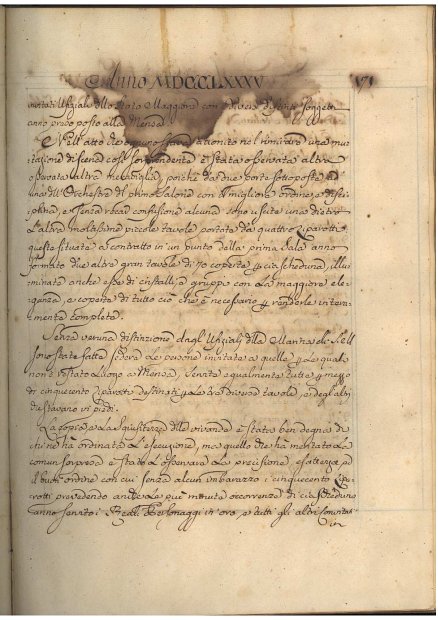 Anno MDCCLXXXV
171
invitati Ufiziali dllo Stato Maggiore con diversi distinti Soggetti
anno preso posto alla Mensa.
Nell' atto che ognuno stava attonito nel rimirare una mu-
tazione di scena così sorprendente è stata osservata altra
altra meraviglia, poichè da due porte sottoposte ad
una dll' Orchestre dl primo Salone con il migliore ordine e disci-
plina, e senza veruna confusione alcuna sono uscite una dietro
l' altra moltissime piccole tavole portate da quattro
queste situate a contratto in un punto della prima Sala anno
formato due altre gran tavole di 70 coperte p ciascheduna, illu-
minata anche esse di cristalli a gruppo con la maggiore ele-
ganza, e coperte di tutto ciò che è necessario p renderle intera-
mente complete.
Senza veruna distinzione dagl' Ufiziali dlla Marina di
sono state fatte sedere le persone invitate a quelle, p le quali
non v'è restato luogo a Mensa, servite egualmente tutte p mezzo
di cinquecento destinati p le tre diverse tavole, e degl' altri
ci stavano in piedi.
La copia e la squisitezza dlle vivande è stata ben degna di
chi ne hà ordinata la esecuzione, ma quello che hà meritato la
comun sorpresa è stato l' osservare la precisione, esattezza, e
il buon ordine con cui senza alcun imbarazzo i cinquecento
provedendo anche le più minute occorrenze di ciascheduno
anno servito i Reali Personaggi in oro, e tutti gli altri convitati
in